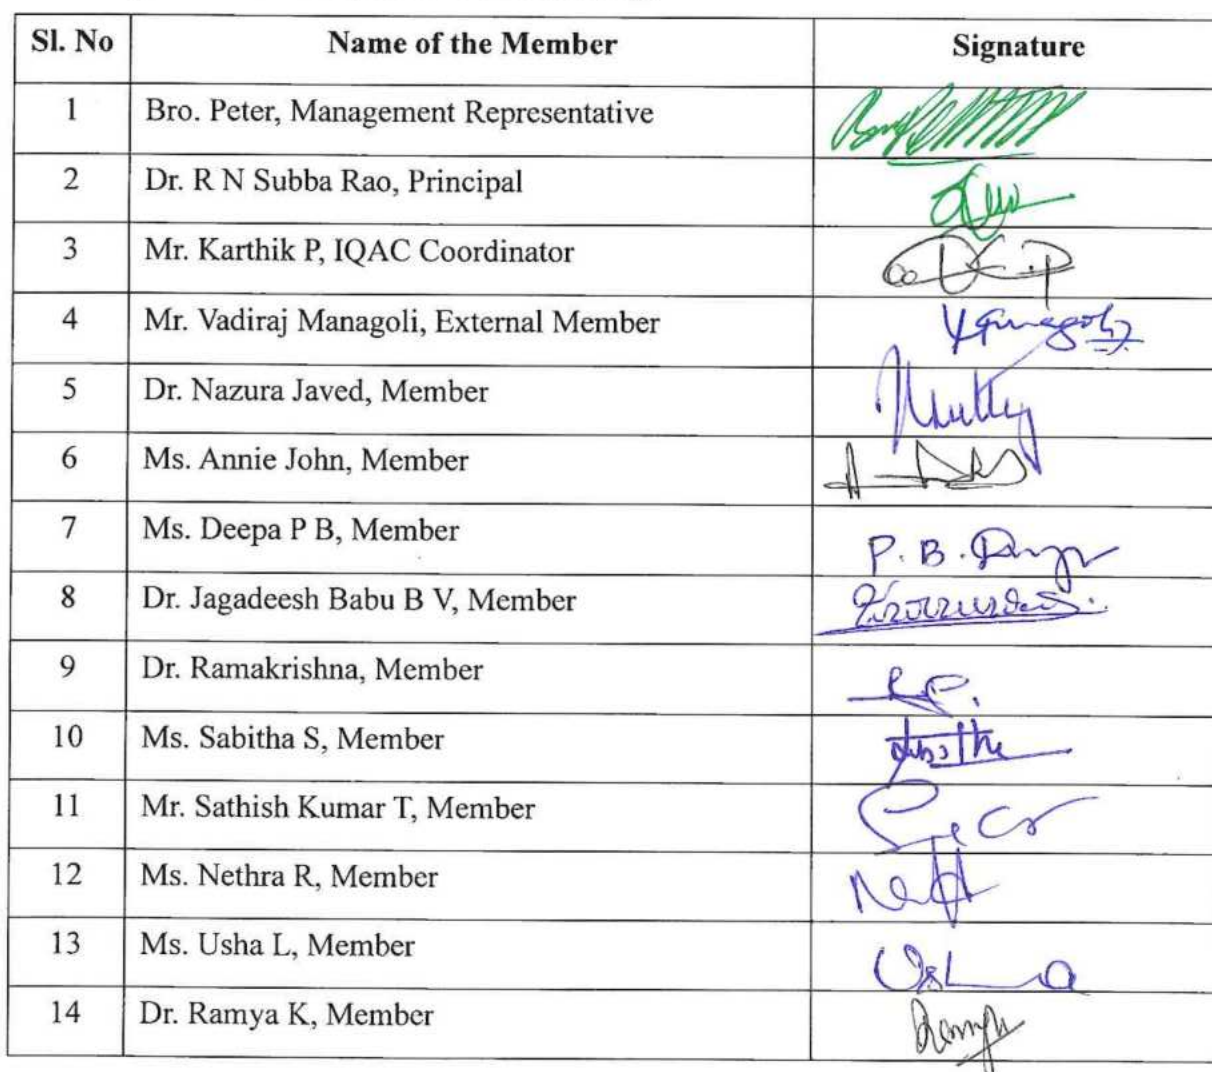 Sl. No Name of the Member Signature
1 Bro. Peter, Management Representative
2 Dr. R N Subba Rao, Principal
3 Mr. Karthik P, IQAC Coordinator
4 Mr. Vadiraj Managoli, External Member
5 Dr. Nazura Javed, Member
6 Ms. Annie John, Member
7 Ms. Deepa P B, Member P. B.
8 Dr. Jagadeesh Babu B V, Member
9 Dr. Ramakrishna, Member
10 Ms. Sabitha S, Member
11 Mr. Sathish Kumar T, Member
12 Ms. Nethra R, Member
13 Ms. Usha L, Member
14 Dr. Ramya K, Member